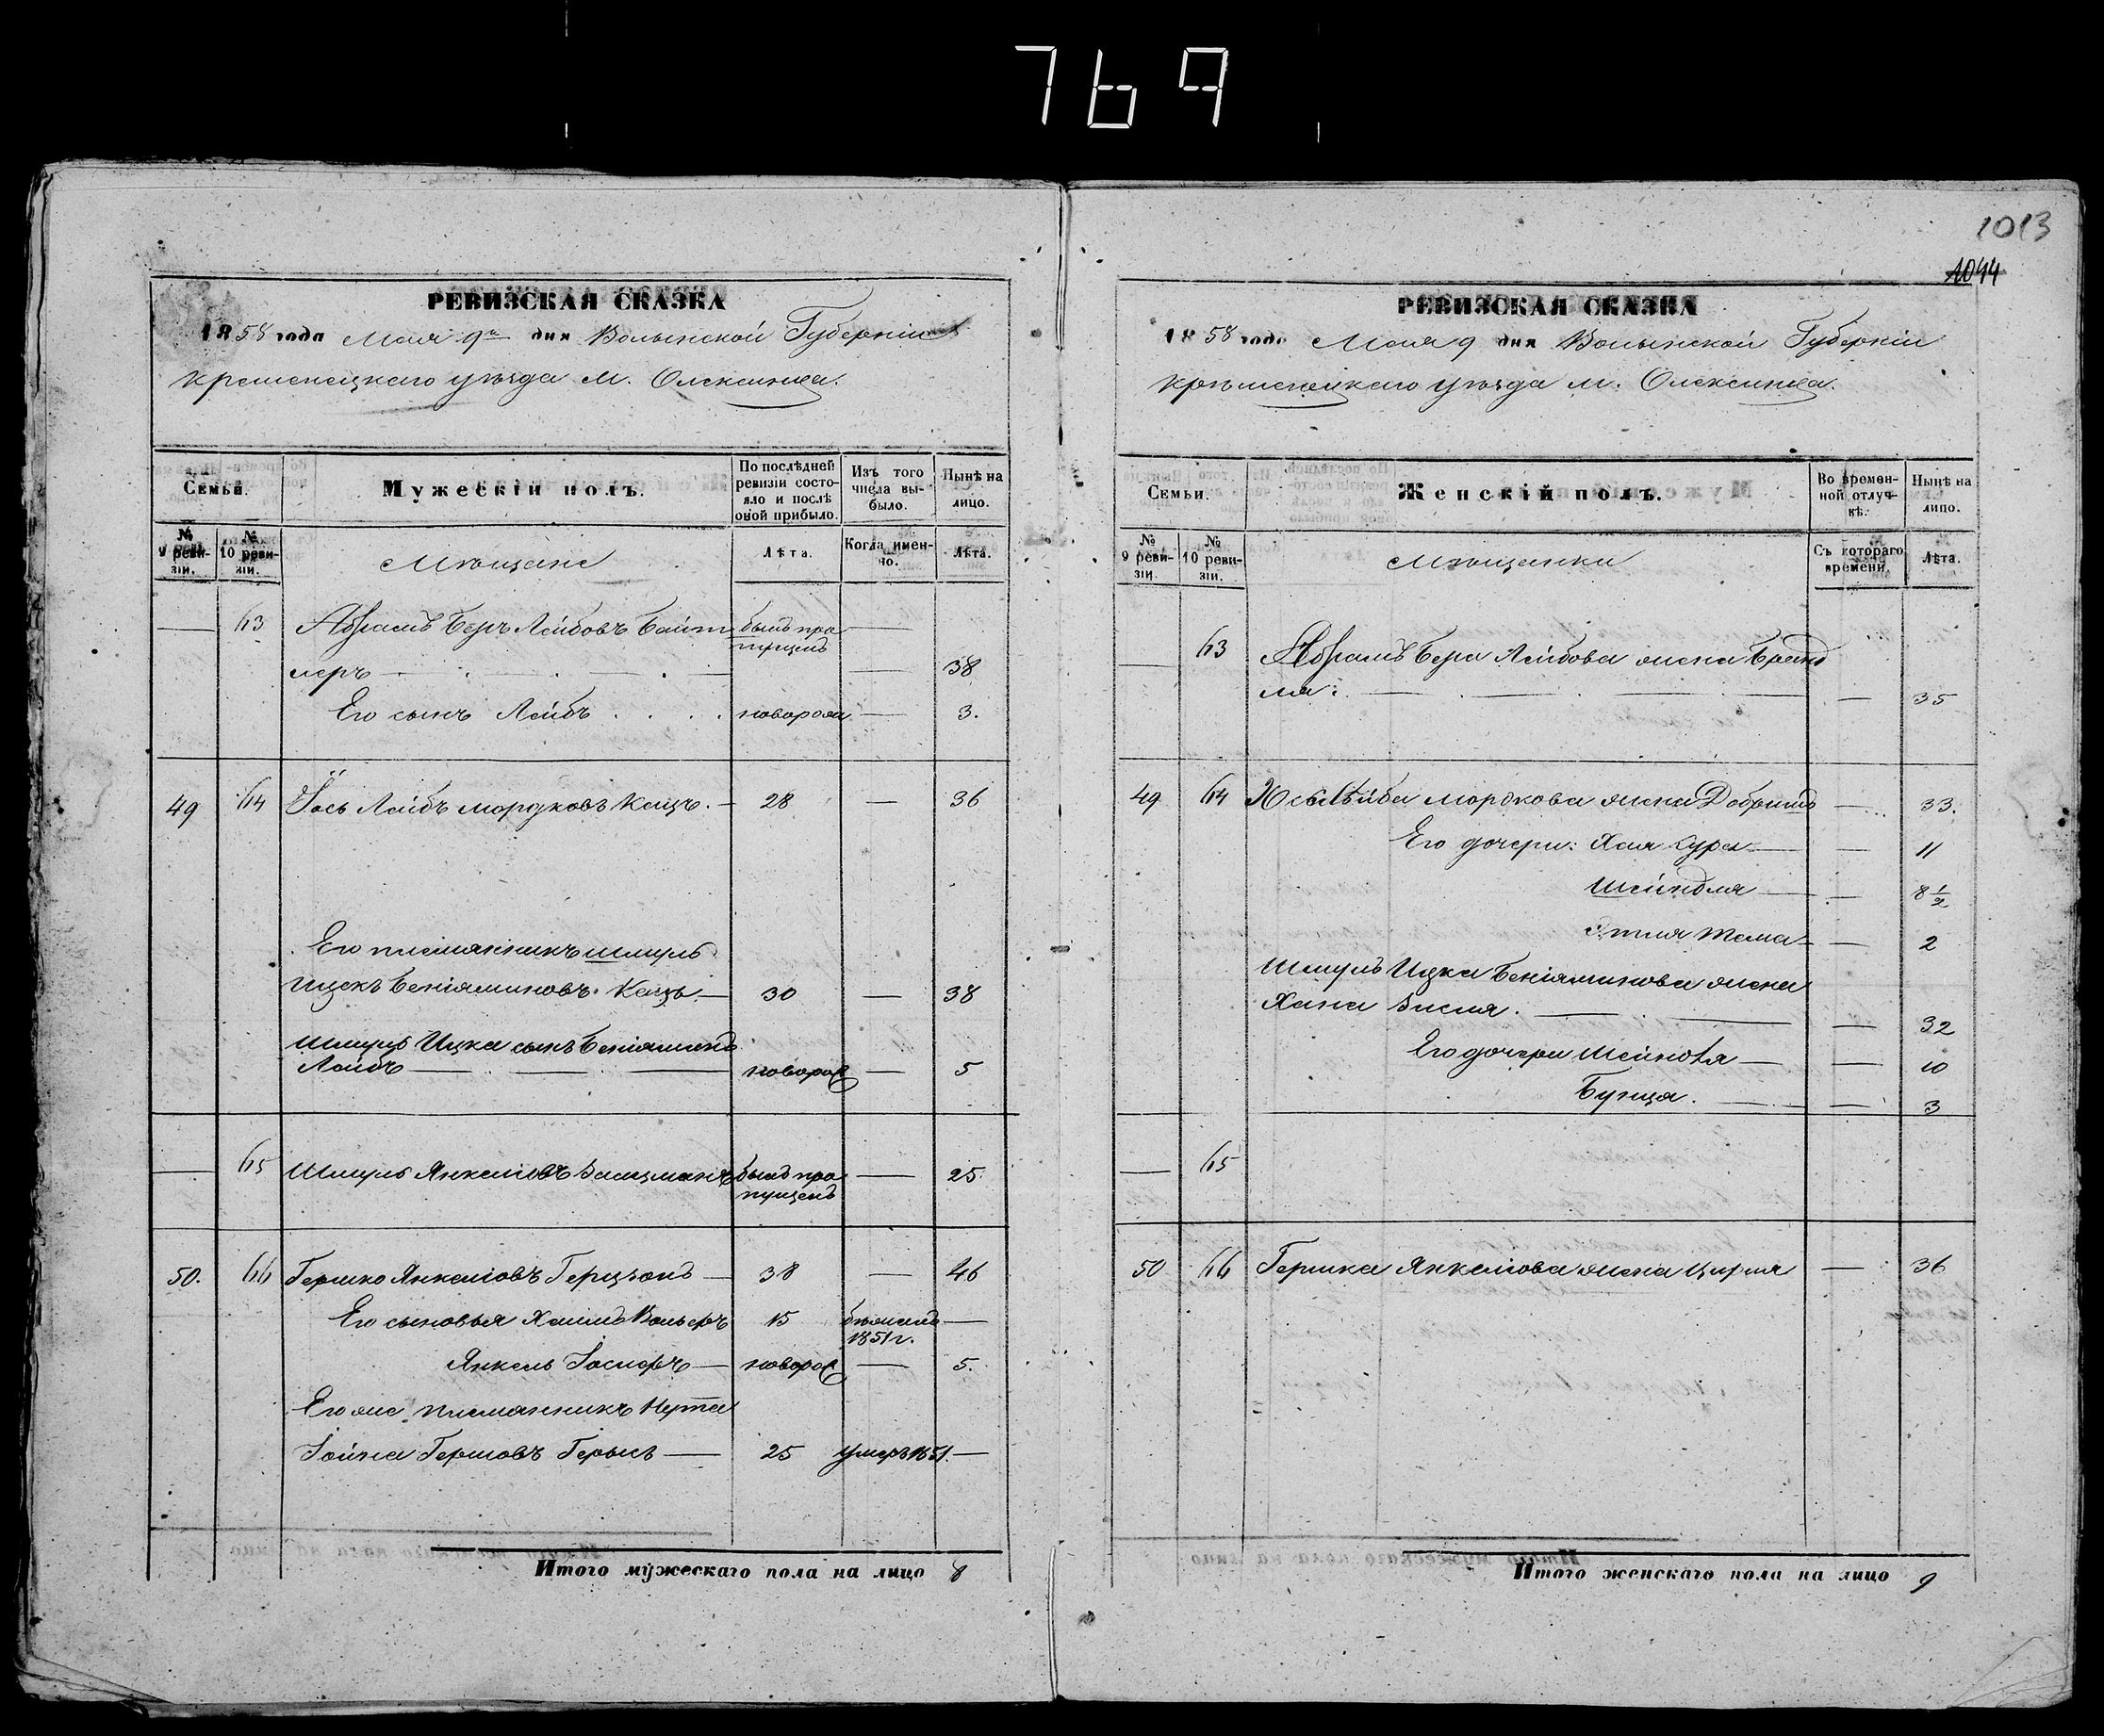 769
1013
1044
РЕВИЗСКАЯ СКАЗКА
1858 года Мая 9го дня Волынской Губерніи
Кременецкаго уѣзда М. Олексинца.
Семьи.
Мужескій полъ.
По послѣдней ревизіи состояло и послѣ оной прибыло.
Изъ того числа выбыло.
Нынѣ на лицо.
№ 9 ревизіи.
№ 10 ревизіи.
Мѣщане
Лѣта.
Когда именно.
Лѣта.
— 63 Абрамъ Беръ Лейбовъ былъ про —
леръ — пущенъ — 38
Его сынъ Лейбъ . . . . новорож — 3.
49 64 Іось Лейбъ Мордковъ Кацъ. — 28 — 36
Его племянникъ Шмуль
Ицекъ Беніяминовъ Кацъ — 30 — 38
Шмуль Ицка сынъ Беніяминъ
Лейбъ — новорож — 5
— 65 Шмуль Янкеліовъ былъ про — 25
пущенъ
50. 66 Гершко Янкеліовъ — 38 — 46
Его сыновья Хаимъ Вольфъ 15 бѣжалъ —
1851 г.
Янкель Іосифъ — новорож — 5.
Его же племянникъ Нута
Іойна Гершовъ — 25 умеръ 1851. —
Итого мужескаго пола на лицо 8
РЕВИЗСКАЯ СКАЗКА
1858 года Мая 9 дня Волынской Губерніи
Кременецкаго уѣзда м. Олексинца.
Семьи.
Женскій полъ.
Во временной отлучкѣ.
Нынѣ на лицо.
№ 9 ревизіи.
№ 10 ревизіи.
Мѣщанки
Съ котораго времени.
Лѣта.
— 63 Абрамъ Бера Лейбова жена Бранд
ля. — — 35
49 64 Лейба Мордкова жена Добрышъ — 33.
Его дочери: Хая Сура — — 11
Шейндля — — 8 1/2
— — 2
Шмуль Ицка Беніяминова жена
Хана — — 32
Его дочери Шейндля — — 10
Бунця. — — 3
— 65
50 66 Гершка Янкеліова жена Цирля — 36
Итого женскаго пола на лицо 9